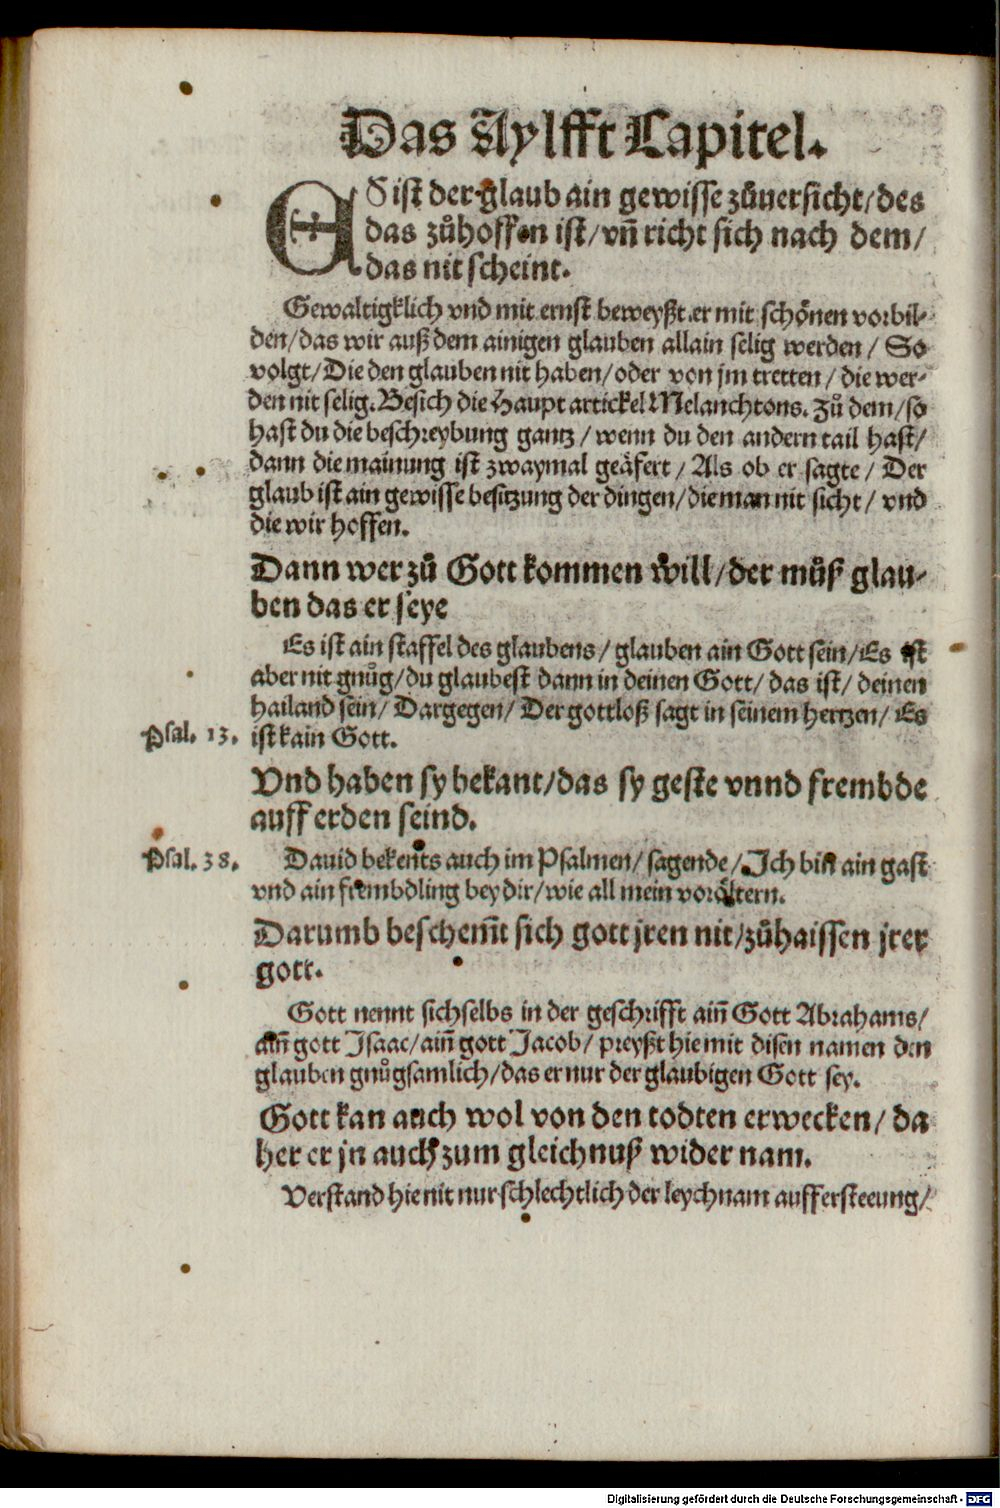 Das Aylfft Capitel.
ES ist der glaub ain gewisse zůuersicht/des
das zůhoffen ist/vn̄ richt sich nach dem/
das nit scheint.
Gewaltigklich vnd mit ernst beweyßt er mit schönen vorbil-
den/das wir auß dem ainigen glauben allain selig werden/ So
volgt/Die den glauben nit haben/oder von jm tretten/ die wer-
den nit selig. Besich die Haupt artickel Melanchtons. Zů dem/so
hast du die beschreybung gantz/ wenn du den andern tail hast/
dann die mainung ist zwaymal geäfert/ Als ob er sagte/ Der
glaub ist ain gewisse besitzung der dingen/die man nit sicht/ vnd
die wir hoffen.
Dann wer zů Gott kommen will/der můß glau-
ben das er seye
Es ist ain staffel des glaubens/ glauben ain Gott sein/Es ist
aber nit gnůg/du glaubest dann in deinen Gott/ das ist/ deinen
hailand sein/ Dargegen/ Der gottloß sagt in seinem hertzen/ Es
Psal. 13. ist kain Gott.
Vnd haben sy bekant/das sy geste vnnd frembde
auff erden seind.
Psal. 38. Dauid bekents auch im Psalmen/ sagende/Ich bin ain gast
vnd ain frembdling bey dir/wie all mein vorältern.
Darumb beschem̄t sich gott jren nit/zůhaissen jrer
gott.
Gott nennt sichselbs in der geschrifft ain̄ Gott Abrahams/
ain̄ gott Isaac/ain̄ gott Jacob/ preyßt hiemit disen namen den
glauben gnůgsamlich/das er nur der glaubigen Gott sey.
Gott kan auch wol von den todten erwecken/ da
her er jn auch zum gleichnuß wider nam.
Verstand hie nit nur schlechtlich der leychnam aufferesteeung/
Digitalisierung gefördert durch die Deutsche Forschungsgemeinschaft - DFG